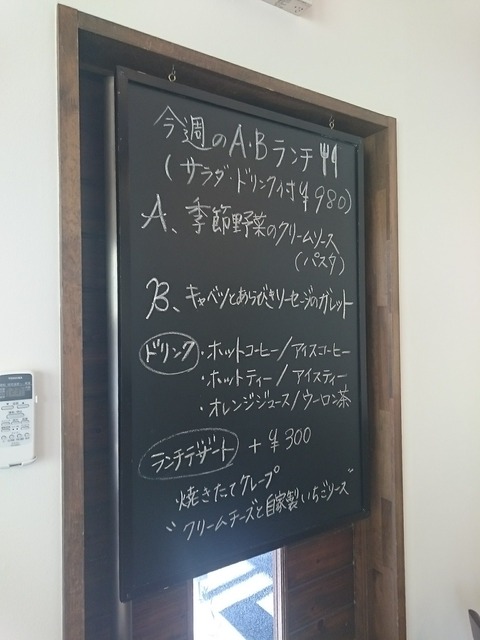 今週のA・Bランチ
(サラダ・ドリンク付¥980)
A、季節野菜のクリームソース
(パスタ)
B、キャベツとあらびきソーセージのガレット
ドリンク・ホットコーヒー/アイスコーヒー
・ホットティー/アイスティー
・オレンジジュース/ウーロン茶
ランチデザート +¥300
焼きたてクレープ
"クリームチーズと自家製いちごソース"